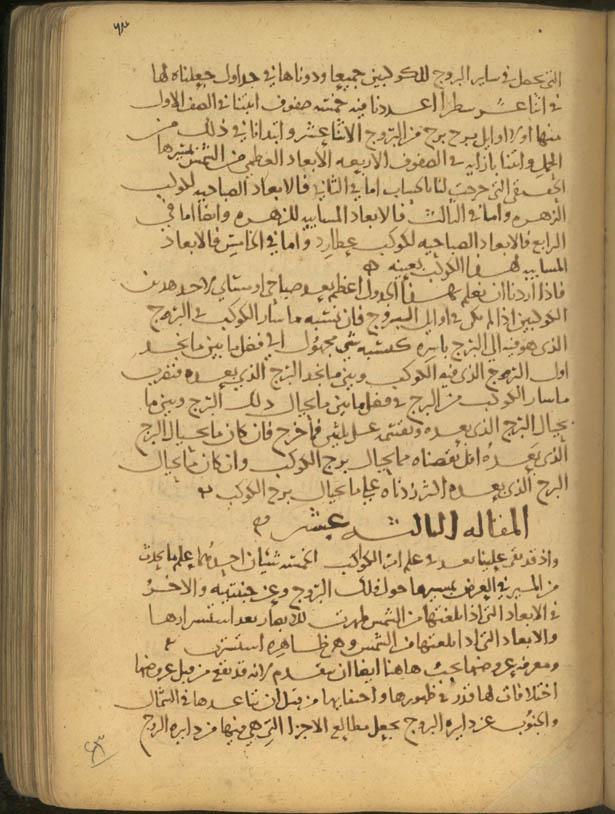 التى تحصل فى ساير البروج للكوكبين جميعا ودوناها فى جداول جعلناه لها
فى اثنا عشر سطرا اعددنا فيه خمسة صفوف اثبتنا فى الصف الاول
منها اوايل برج برج من البروج الاثنا عشر وابتدانا فى ذلك من
الحمل واثبتنا بازايه فى الصفوف الاربعه الابعاد العظمى من الشمس بمسيرها
التى خرجت لنا بالحساب اما فى الثانى فالابعاد الصباحيه لكوكب
الزهره واما فى الثالث فالابعاد المسايه للزهره وايضا اما فى
الرابع فالابعاد الصباحيه لكوكب عطارد واما فى الخامس فالابعاد
المسايه لهذا الكوكب بعينه
فاذا اردنا ان نعلم بهذا الجدول اعظم بعد صباحى او مسايى لاحد هذين
الكوكبين اذا لم يكن فى اوايل البروج فان نسبه ما سار الكوكب فى البرج
الذى هو فيه الى البرج باسره كنسبه شى مجهول الى فضل ما بين ما نجد
اول البرج الذى فيه الكوكب وبين ما نجد البرج الذى بعده فنضرب
ما سار الكوكب من البرج فى فضل ما بين ما بحيال ذلك البرج وبين ما
بحيال البرج الذى بعده ونقسم على ثلثين فما خرج فان كان ما بحيال البرج
الذى بعده اقل نقصناه مما بحيال برج الكوكب وان كان ما بحيال
البرج الذى بعده اكثر زدناه على ما بحيال برج الكوكب
المقاله الثالثه عشر
واذ قد بقى علينا بعد فى علم امر الكواكب الخمسه شيئان احدهما علم ما يحدث
من المسير فى العرض بمسيرها حول فلك البروج وعن جنبتيه والاخر
فى الابعاد التى اذا بلغتها من الشمس ظهرت للابصار بعد استسرارها
والابعاد التى اذا بلغتها من الشمس وهى ظاهره استسرت
ومعرفه عروضها يجب هاهنا ايضا ان يتقدم لانه قد يقع من قبل عروضها
اختلافات لها قدر فى ظهورها واختفايها من قبل ان تباعدها فى الشمال
والجنوب عن دايره البروج يجعل مطالع الاجزا التى هى فيها من دايره البروج